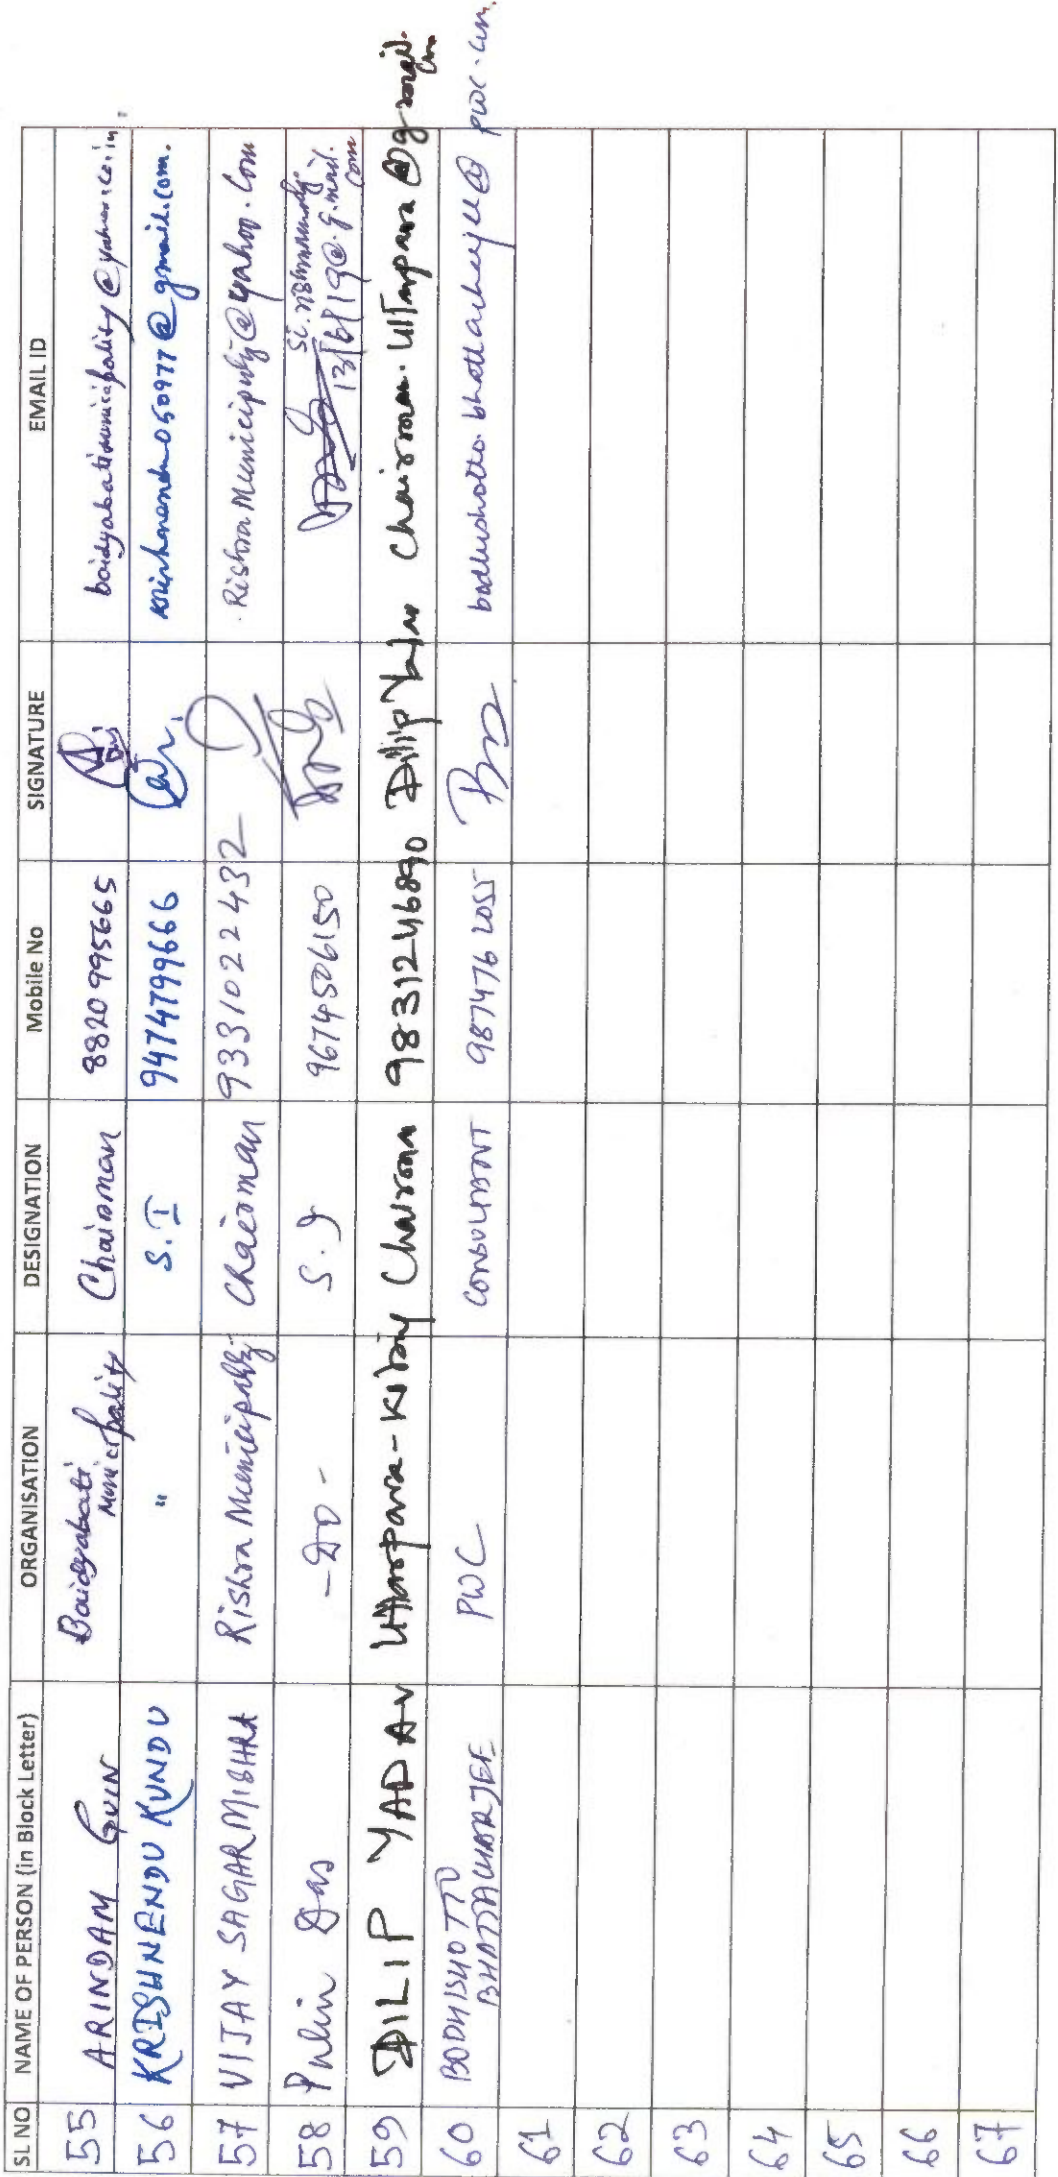 SL NO NAME OF PERSON (in Block Letter) ORGANISATION DESIGNATION Mobile No SIGNATURE EMAIL ID
55 ARINDAM GUIN Baidyabati Municipality Chairman 8820995665 baidyabatimunicipality@yahoo.co.in
56 KRISHNENDU KUNDU " S.I 9474799666 krishnendu050977@gmail.com.
57 VIJAY SAGAR MISHRA Rishra Municipality Chairman 9331022432 Rishra Municipality@yahoo.com
58 Pulin Das -Do- S.I 9674506150 13/6/19 @g.mail.com
59 DILIP YADAV Uttarpara-Kotrung Chairman 9831246890 Dilip Yadav Chairman.uttarpara@gmail.com
60 BODHISHOTTO BHATTACHARJEE PWC CONSULTANT 9874762055 bodhishotto.bhattacharjee@pwc.com
61
62
63
64
65
66
67